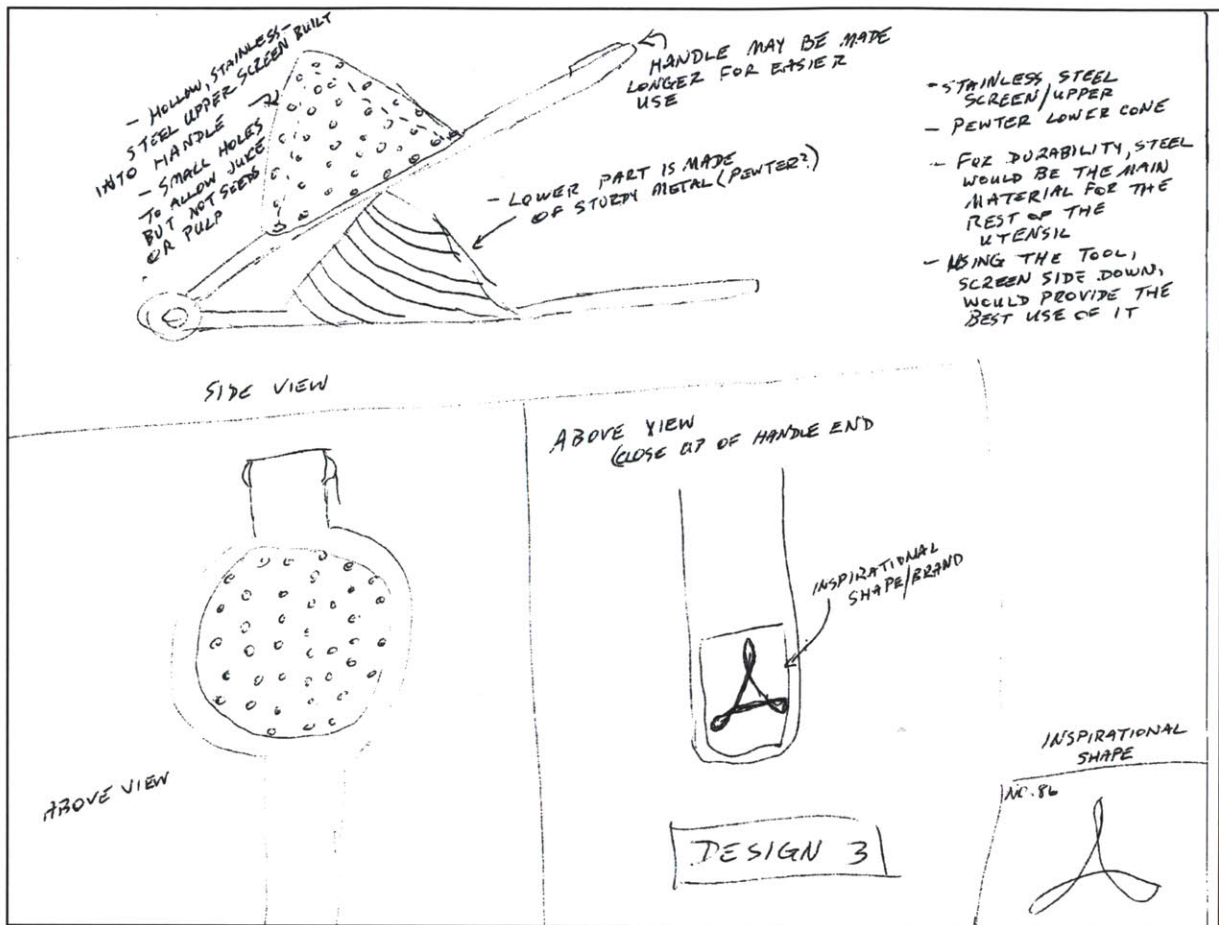 - HOLLOW, STAINLESS-
STEEL UPPER SCREEN BUILT
INTO HANDLE
- SMALL HOLES
TO ALLOW JUICE
BUT NOT SEEDS
OR PULP
HANDLE MAY BE MADE
LONGER FOR EASIER
USE
- LOWER PART IS MADE
OF STURDY METAL (PEWTER?)
- STAINLESS, STEEL
SCREEN/UPPER
- PEWTER LOWER CONE
- FOR DURABILITY, STEEL
WOULD BE THE MAIN
MATERIAL FOR THE
REST OF THE
UTENSIL
- USING THE TOOL,
SCREEN SIDE DOWN,
WOULD PROVIDE THE
BEST USE OF IT
SIDE VIEW
ABOVE VIEW
(CLOSE UP OF HANDLE END
INSPIRATIONAL
SHAPE/BRAND
ABOVE VIEW
DESIGN 3
INSPIRATIONAL
SHAPE
NO. 86